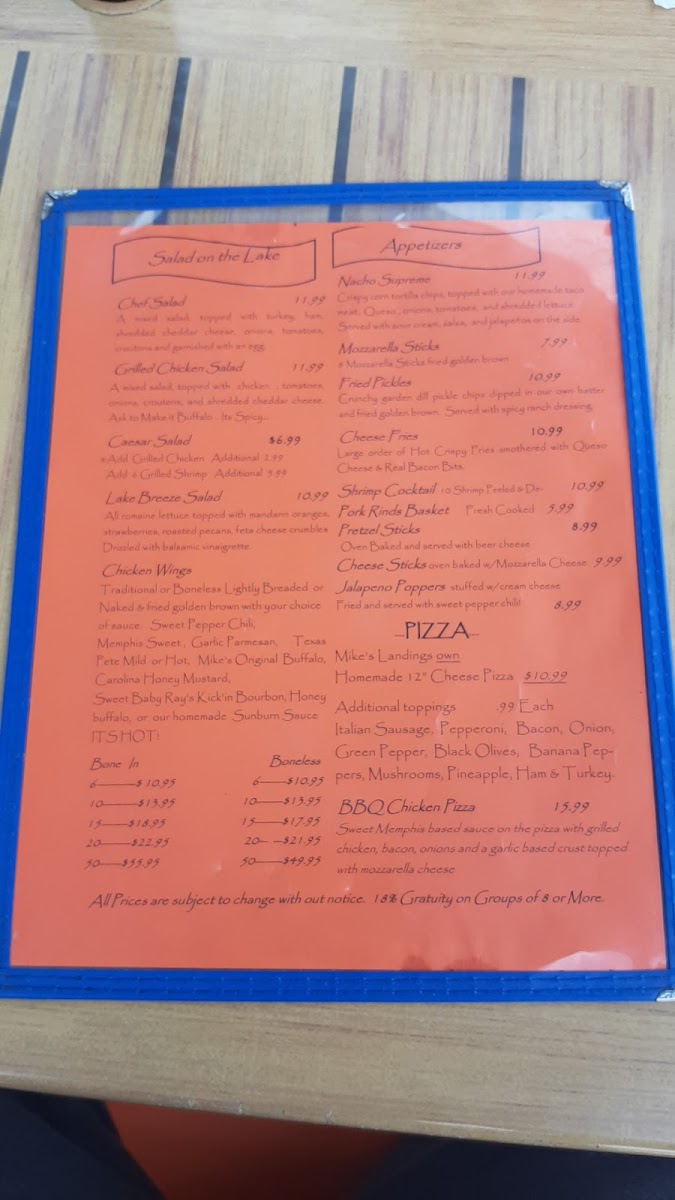 Salad on the Lake
Chef Salad 11.99
A mixed salad, topped with turkey, ham,
shredded cheddar cheese, onions, tomatoes,
croutons and garnished with an egg.
Grilled Chicken Salad 11.99
A mixed salad, topped with chicken , tomatoes,
onions, croutons, and shredded cheddar cheese.
Ask to Make it Buffalo . Its Spicy...
Caesar Salad $6.99
*Add Grilled Chicken Additional 2.99
Add 6 Grilled Shrimp Additional 3.99
Lake Breeze Salad 10.99
All romaine lettuce topped with mandarin oranges,
strawberries, roasted pecans, feta cheese crumbles
Drizzled with balsamic vinaigrette.
Chicken Wings
Traditional or Boneless Lightly Breaded or
Naked & fried golden brown with your choice
of sauce. Sweet Pepper Chili,
Memphis Sweet , Garlic Parmesan, Texas
Pete Mild or Hot, Mike's Original Buffalo,
Carolina Honey Mustard,
Sweet Baby Ray's Kick'in Bourbon, Honey
buffalo, or our homemade Sunburn Sauce
ITS HOT!
Bone In Boneless
6——$10.95 6——$10.95
10——$13.95 10——$13.95
15——$18.95 15——$17.95
20——$22.95 20— —$21.95
50——$55.95 50——$49.95
Appetizers
Nacho Supreme 11.99
Crispy corn tortilla chips, topped with our homemade taco
meat, Queso , onions, tomatoes, and shredded lettuce
Served with sour cream, salsa, and jalapeños on the side.
Mozzarella Sticks 7.99
8 Mozzarella Sticks fried golden brown
Fried Pickles 10.99
Crunchy garden dill pickle chips dipped in our own batter
and fried golden brown. Served with spicy ranch dressing.
Cheese Fries 10.99
Large order of Hot Crispy Fries smothered with Queso
Cheese & Real Bacon Bits.
Shrimp Cocktail 10 Shrimp Peeled & De- 10.99
Pork Rinds Basket Fresh Cooked 5.99
Pretzel Sticks 8.99
Oven Baked and served with beer cheese
Cheese Sticks oven baked w/Mozzarella Cheese 9.99
Jalapeno Poppers stuffed w/cream cheese
Fried and served with sweet pepper chili! 8.99
...PIZZA...
Mike's Landings own
Homemade 12" Cheese Pizza $10.99
Additional toppings .99 Each
Italian Sausage, Pepperoni, Bacon, Onion,
Green Pepper, Black Olives, Banana Pep-
pers, Mushrooms, Pineapple, Ham & Turkey.
BBQ Chicken Pizza 15.99
Sweet Memphis based sauce on the pizza with grilled
chicken, bacon, onions and a garlic based crust topped
with mozzarella cheese
All Prices are subject to change with out notice. 18% Gratuity on Groups of 8 or More.